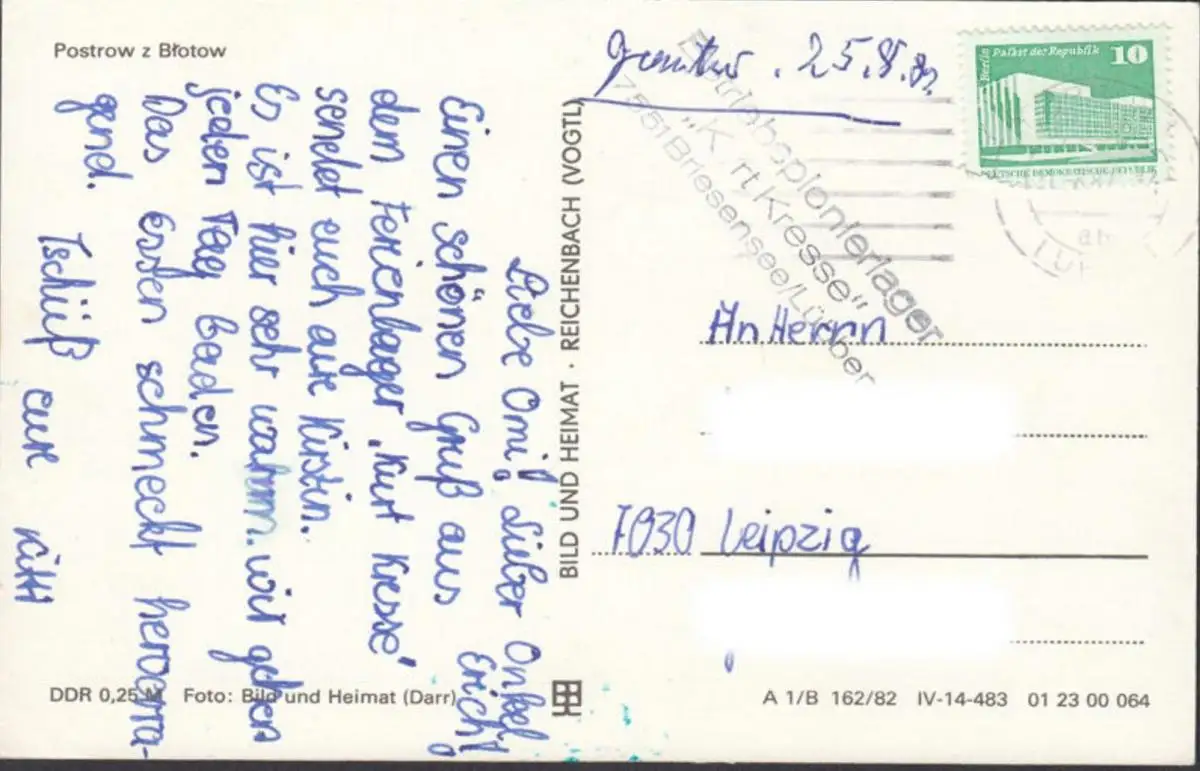 Postrow z Błotow
Liebe Omi! Lieber Onkel
Erich!
Einen schönen Gruß aus
dem Ferienlager "Kurt Kresse"
sendet euch aure Kirstin.
Es ist hier sehr warm. wir gehen
jeden Tag baden.
Das Essen schmeckt hervorra-
gend.
Tschüß eure Kitti
DDR 0,25 M Foto: Bild und Heimat (Darr)
BILD UND HEIMAT · REICHENBACH (VOGTL)
25.8.
Betriebspionierlager
"K rt Kresse"
7551 Briesensee/Lübben
Berlin Palast der Republik 10
DEUTSCHE DEMOKRATISCHE REPUBLIK
An Herrn
7030 Leipzig
A 1/B 162/82 IV-14-483 01 23 00 064